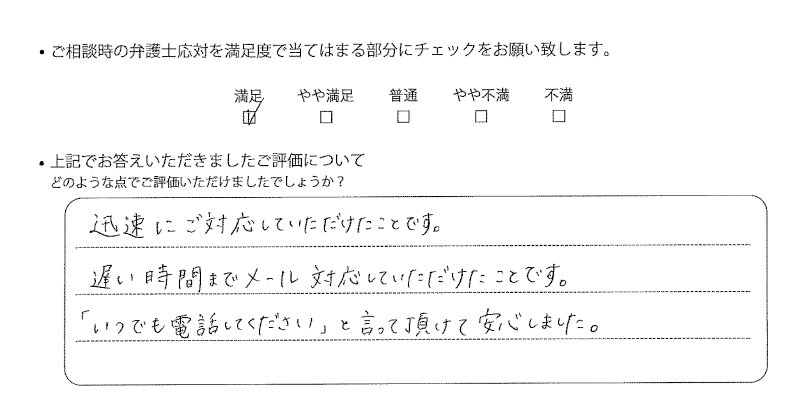 ・ご相談時の弁護士応対を満足度で当てはまる部分にチェックをお願い致します。
満足 やや満足 普通 やや不満 不満
・上記でお答えいただきましたご評価について
どのような点でご評価いただけましたでしょうか？
迅速にご対応していただけたことです。
遅い時間までメール対応していただけたことです。
「いつでも電話してください」と言って頂けて安心しました。